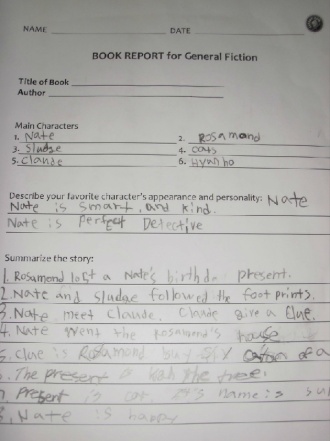 NAME DATE
BOOK REPORT for General Fiction
Title of Book
Author
Main Characters
1. Nate 2. Rosamond
3. Sludge 4. cats
5. Claude 6.
Describe your favorite character's appearance and personality: Nate
Nate is smart, and kind.
Nate is Perfect Detective
Summarize the story:
1. Rosamond lost a Nate's birthday present.
2. Nate and sludge followed the foot prints.
3. Nate meet Claude. Claude give a Clue.
4. Nate went the rosamond's house
5. Clue is Rosamond buy of a
6. The present
7. Present is cat. name is
8. Nate is happy